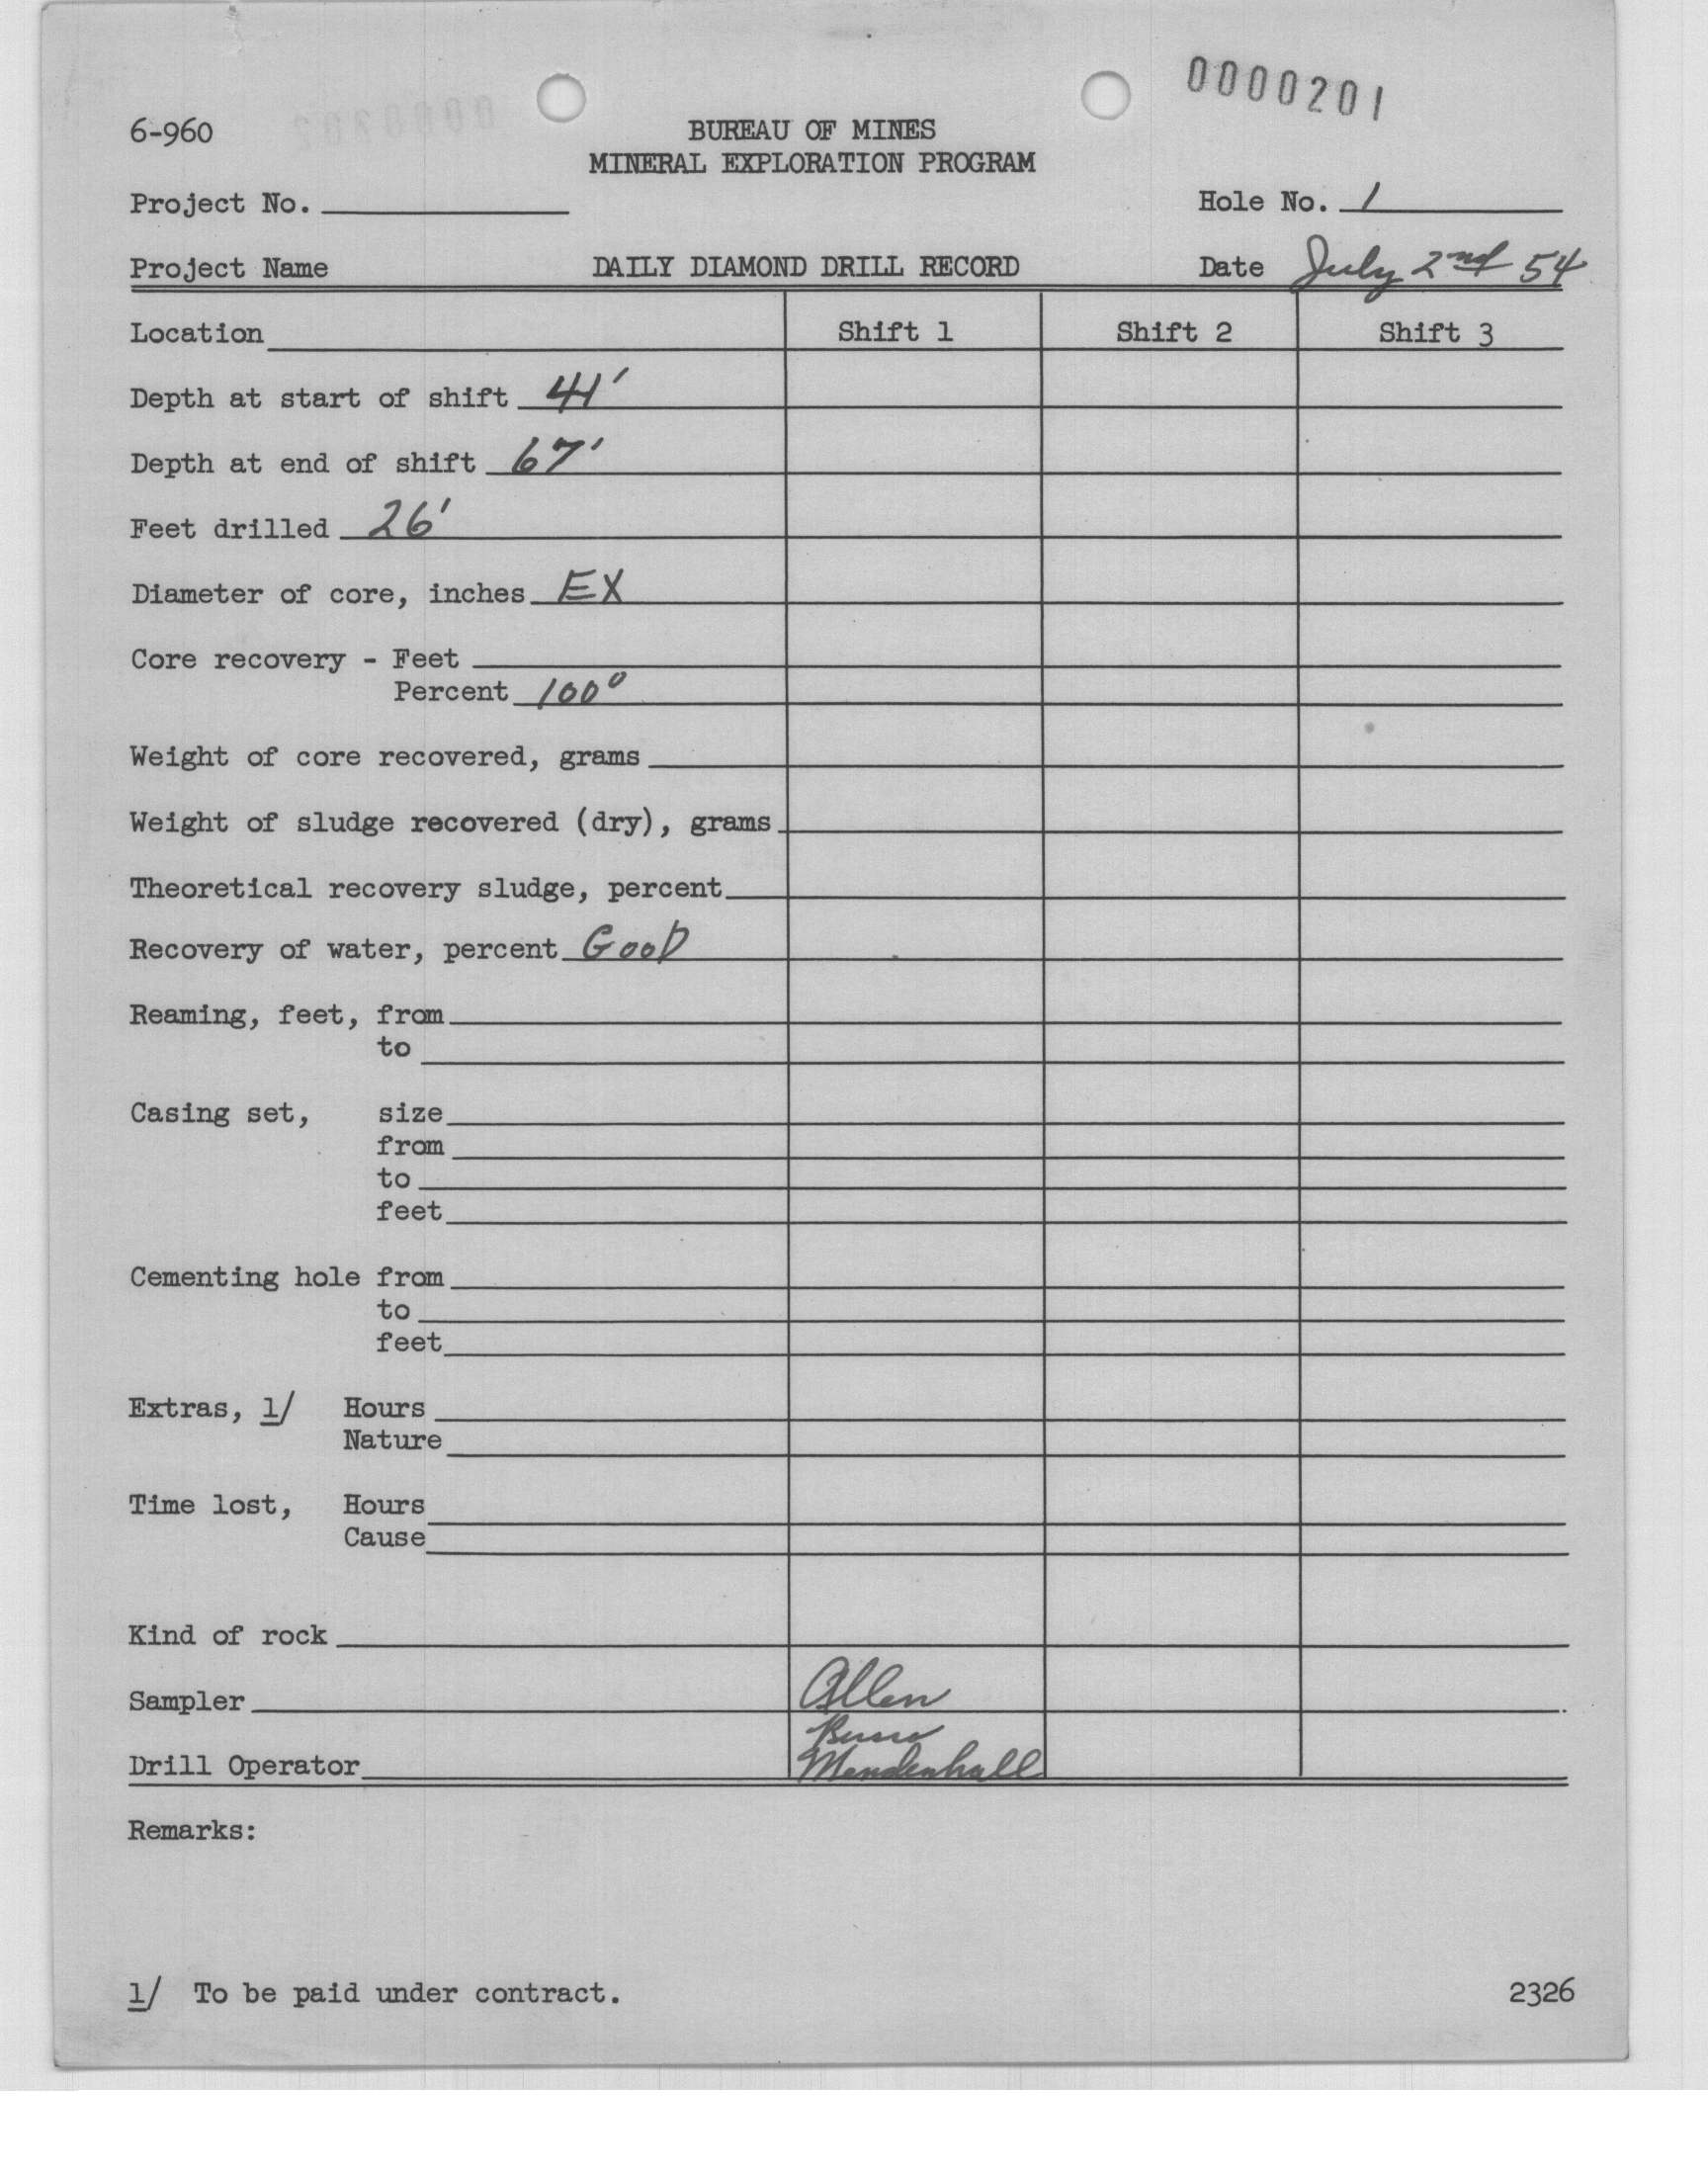 0000201
6-960
BUREAU OF MINES
MINERAL EXPLORATION PROGRAM
Project No.
Hole No. 1
Project Name DAILY DIAMOND DRILL RECORD Date July 2nd 54
Location Shift 1 Shift 2 Shift 3
Depth at start of shift 41'
Depth at end of shift 67'
Feet drilled 26'
Diameter of core, inches EX
Core recovery - Feet
Percent 100°
Weight of core recovered, grams
Weight of sludge recovered (dry), grams
Theoretical recovery sludge, percent
Recovery of water, percent GooD
Reaming, feet, from
to
Casing set, size
from
to
feet
Cementing hole from
to
feet
Extras, 1/ Hours
Nature
Time lost, Hours
Cause
Kind of rock
Sampler Allen
Drill Operator Mendenhall
Remarks:
1/ To be paid under contract.
2326